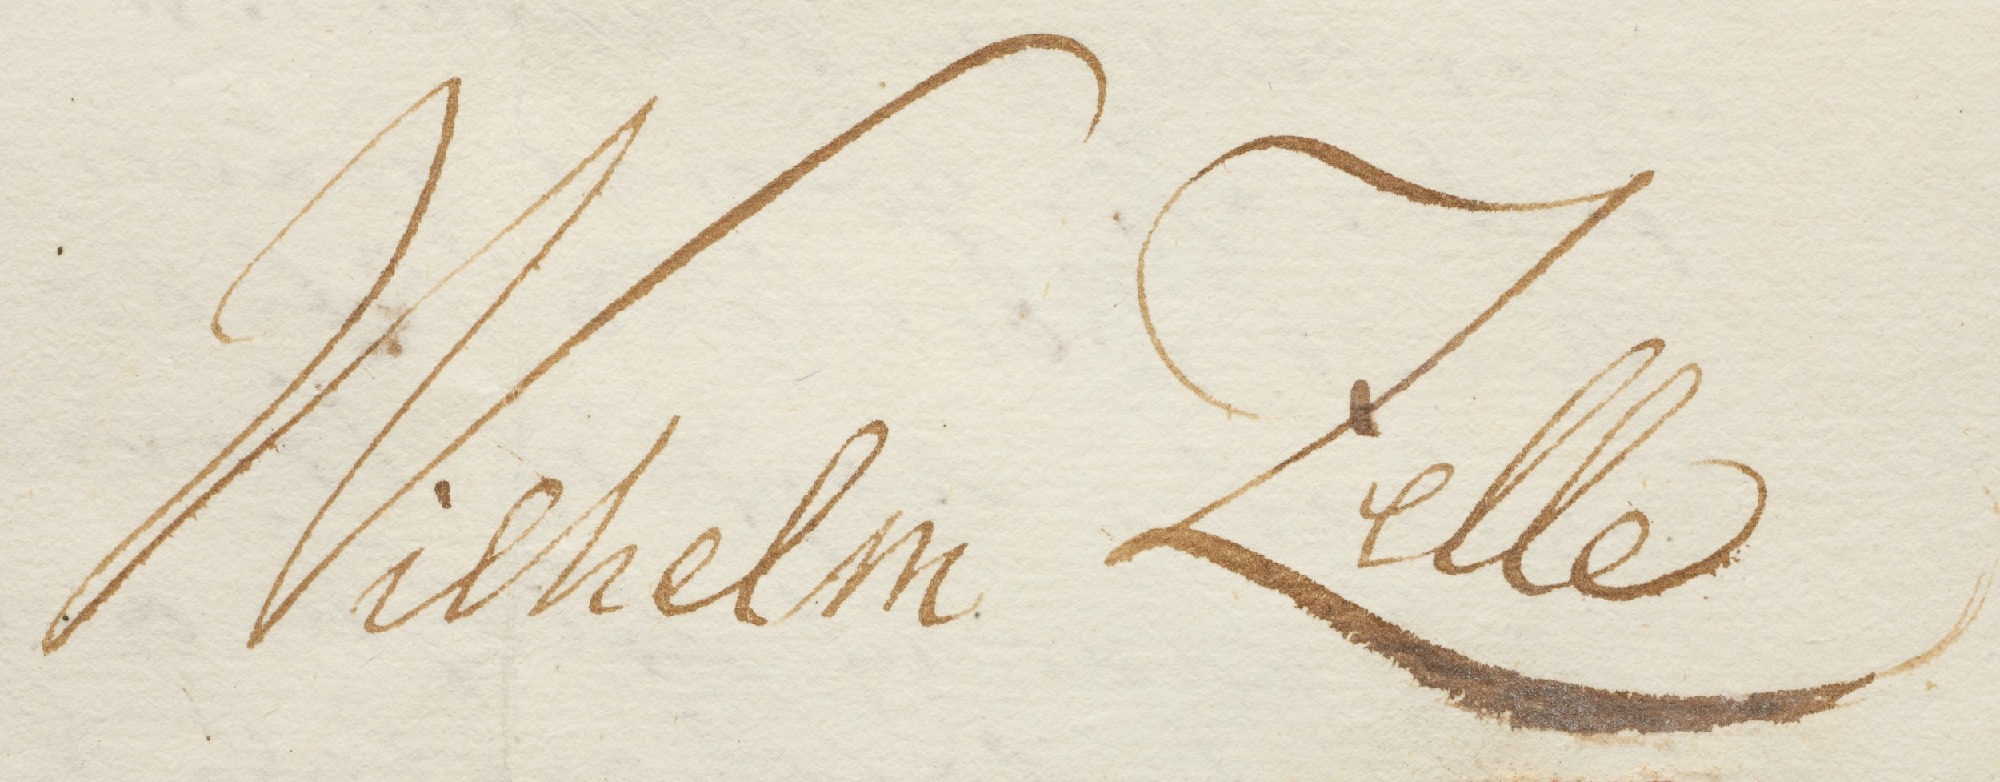 Wilhelm Zelle